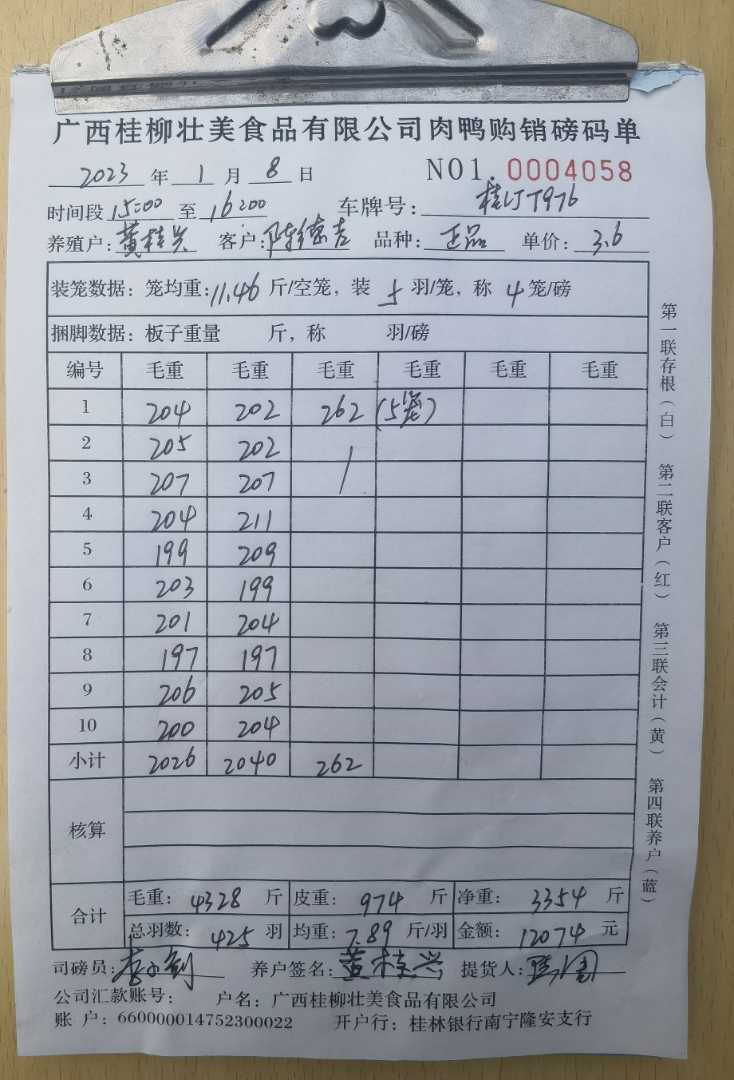 广西桂柳壮美食品有限公司肉鸭购销磅码单
2023 年 1 月 8 日 NO1. 0004058
时间段 15:00 至 16:00 车牌号: 桂JT976
养殖户: 黄桂兴 客户: 陈德吉 品种: 正品 单价: 3.6
装笼数据: 笼均重: 11.46 斤/空笼, 装 5 羽/笼, 称 4 笼/磅
捆脚数据: 板子重量 斤, 称 羽/磅
编号 毛重 毛重 毛重 毛重 毛重 毛重
1 204 202 262 (5笼)
2 205 202
3 207 207
4 204 211
5 199 209
6 203 199
7 201 204
8 197 197
9 206 205
10 200 204
小计 2026 2040 262
核算
合计
毛重: 4328 斤 皮重: 974 斤 净重: 3354 斤
总羽数: 425 羽 均重: 7.89 斤/羽 金额: 12074 元
司磅员: 养户签名: 黄桂兴 提货人:
公司汇款账号: 户名: 广西桂柳壮美食品有限公司
账 户: 660000014752300022 开户行: 桂林银行南宁隆安支行
第一联存根(白) 第二联客户(红) 第三联会计(黄) 第四联养户(蓝)